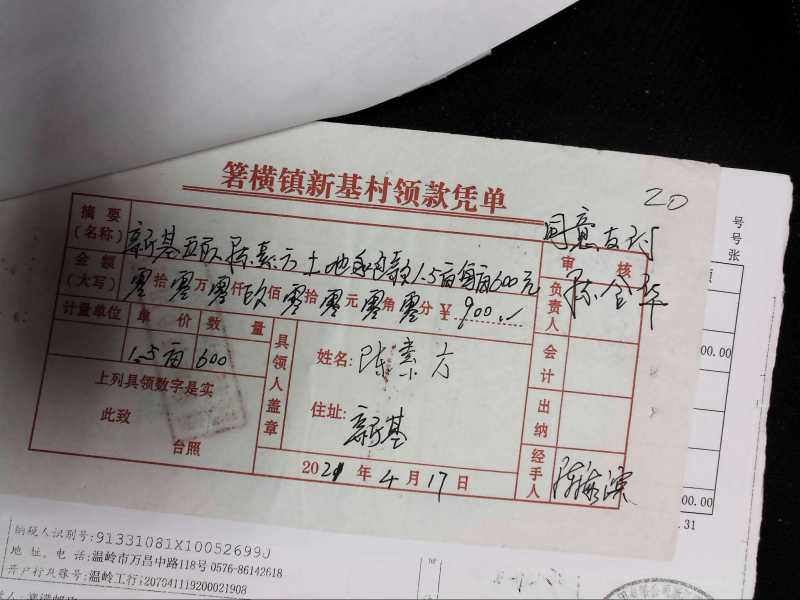 箬横镇新基村领款凭单
20
同意支付
摘要
(名称)
新基 陈素方土地 款1.5亩每亩600元
审核
金额
(大写)
零拾零万零仟玖佰零拾零元零角零分 ¥900.—
负责人
陈金华
计量单位 单价 数量
1.5亩 600
具领人盖章
姓名: 陈素方
会计
上列具领数字是实
此致
台照
住址: 新基
出纳
2021年4月17日
经手人
号
号
张
00.00
00.00
.31
纳税人识别号:91331081X10052699J
地址、电话:温岭市万昌中路118号 0576-86142618
开户行及账号:温岭工行1207041119200021908